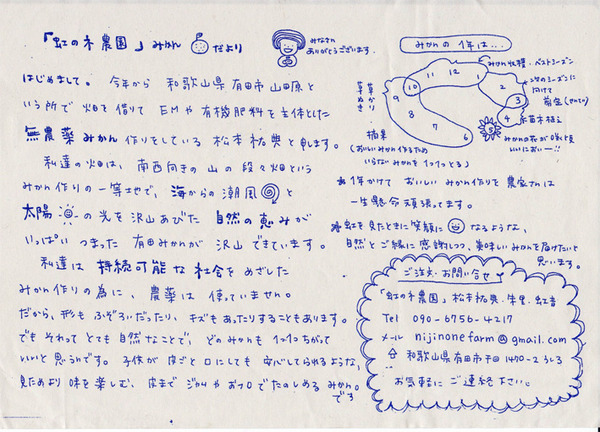 「虹のネ農園」みかん だより
みなさん
ありがとうございます。
はじめまして。今年から 和歌山県 有田市 山田原と
いう所で 畑を 借りて EMや 有機肥料を 主体とした
無農薬みかん作りをしている 松本祐典と申します。
私達の畑は、南西向きの 山の 段々畑という
みかん作りの 一等地で、海からの 潮風と
太陽の 光を 沢山あびた 自然の恵みが
いっぱい つまった 有田みかんが 沢山 できています。
私達は 持続可能な社会を めざした
みかん作りの 為に、農薬は 使っていません。
だから、形も ふぞろいだったり、キズも あったりすることもあります。
でも それって とても 自然なことで、どのみかんも 1つ1つちがって
いいと 思うんです。子供が 皮ごと 口にしても 安心してられるような、
見ためより 味を楽しむ、皮まで ジャムや おフロで たのしめる みかん
です
みかんの 1年は...
みかん収穫・ベストシーズン
1
2
3
4
5
6
7
8
9
10
11
12
次のシーズンに
向けて
剪定(せんてい)
苗木植え
みかんの花が咲く頃
いいにおい〜!!
草ぬき
草かり
摘果
(おいしいみかん作るため
いらないみかんを 1つ1つとる)
1年かけて おいしい みかん作りを 農家さんは
一生懸命 頑張ってます。
虹を見たときに 笑顔に なるような、
自然と ご縁に 感謝しつつ、美味しい みかんを 届けたいと
思います。
ご注文・お問い合せ
「虹のネ農園」松本祐典・朱里・虹音
Tel 090-6756-4217
メール nijinonefarm@gmail.com
和歌山県有田市千田1470-2
お気軽に ご連絡 下さい。